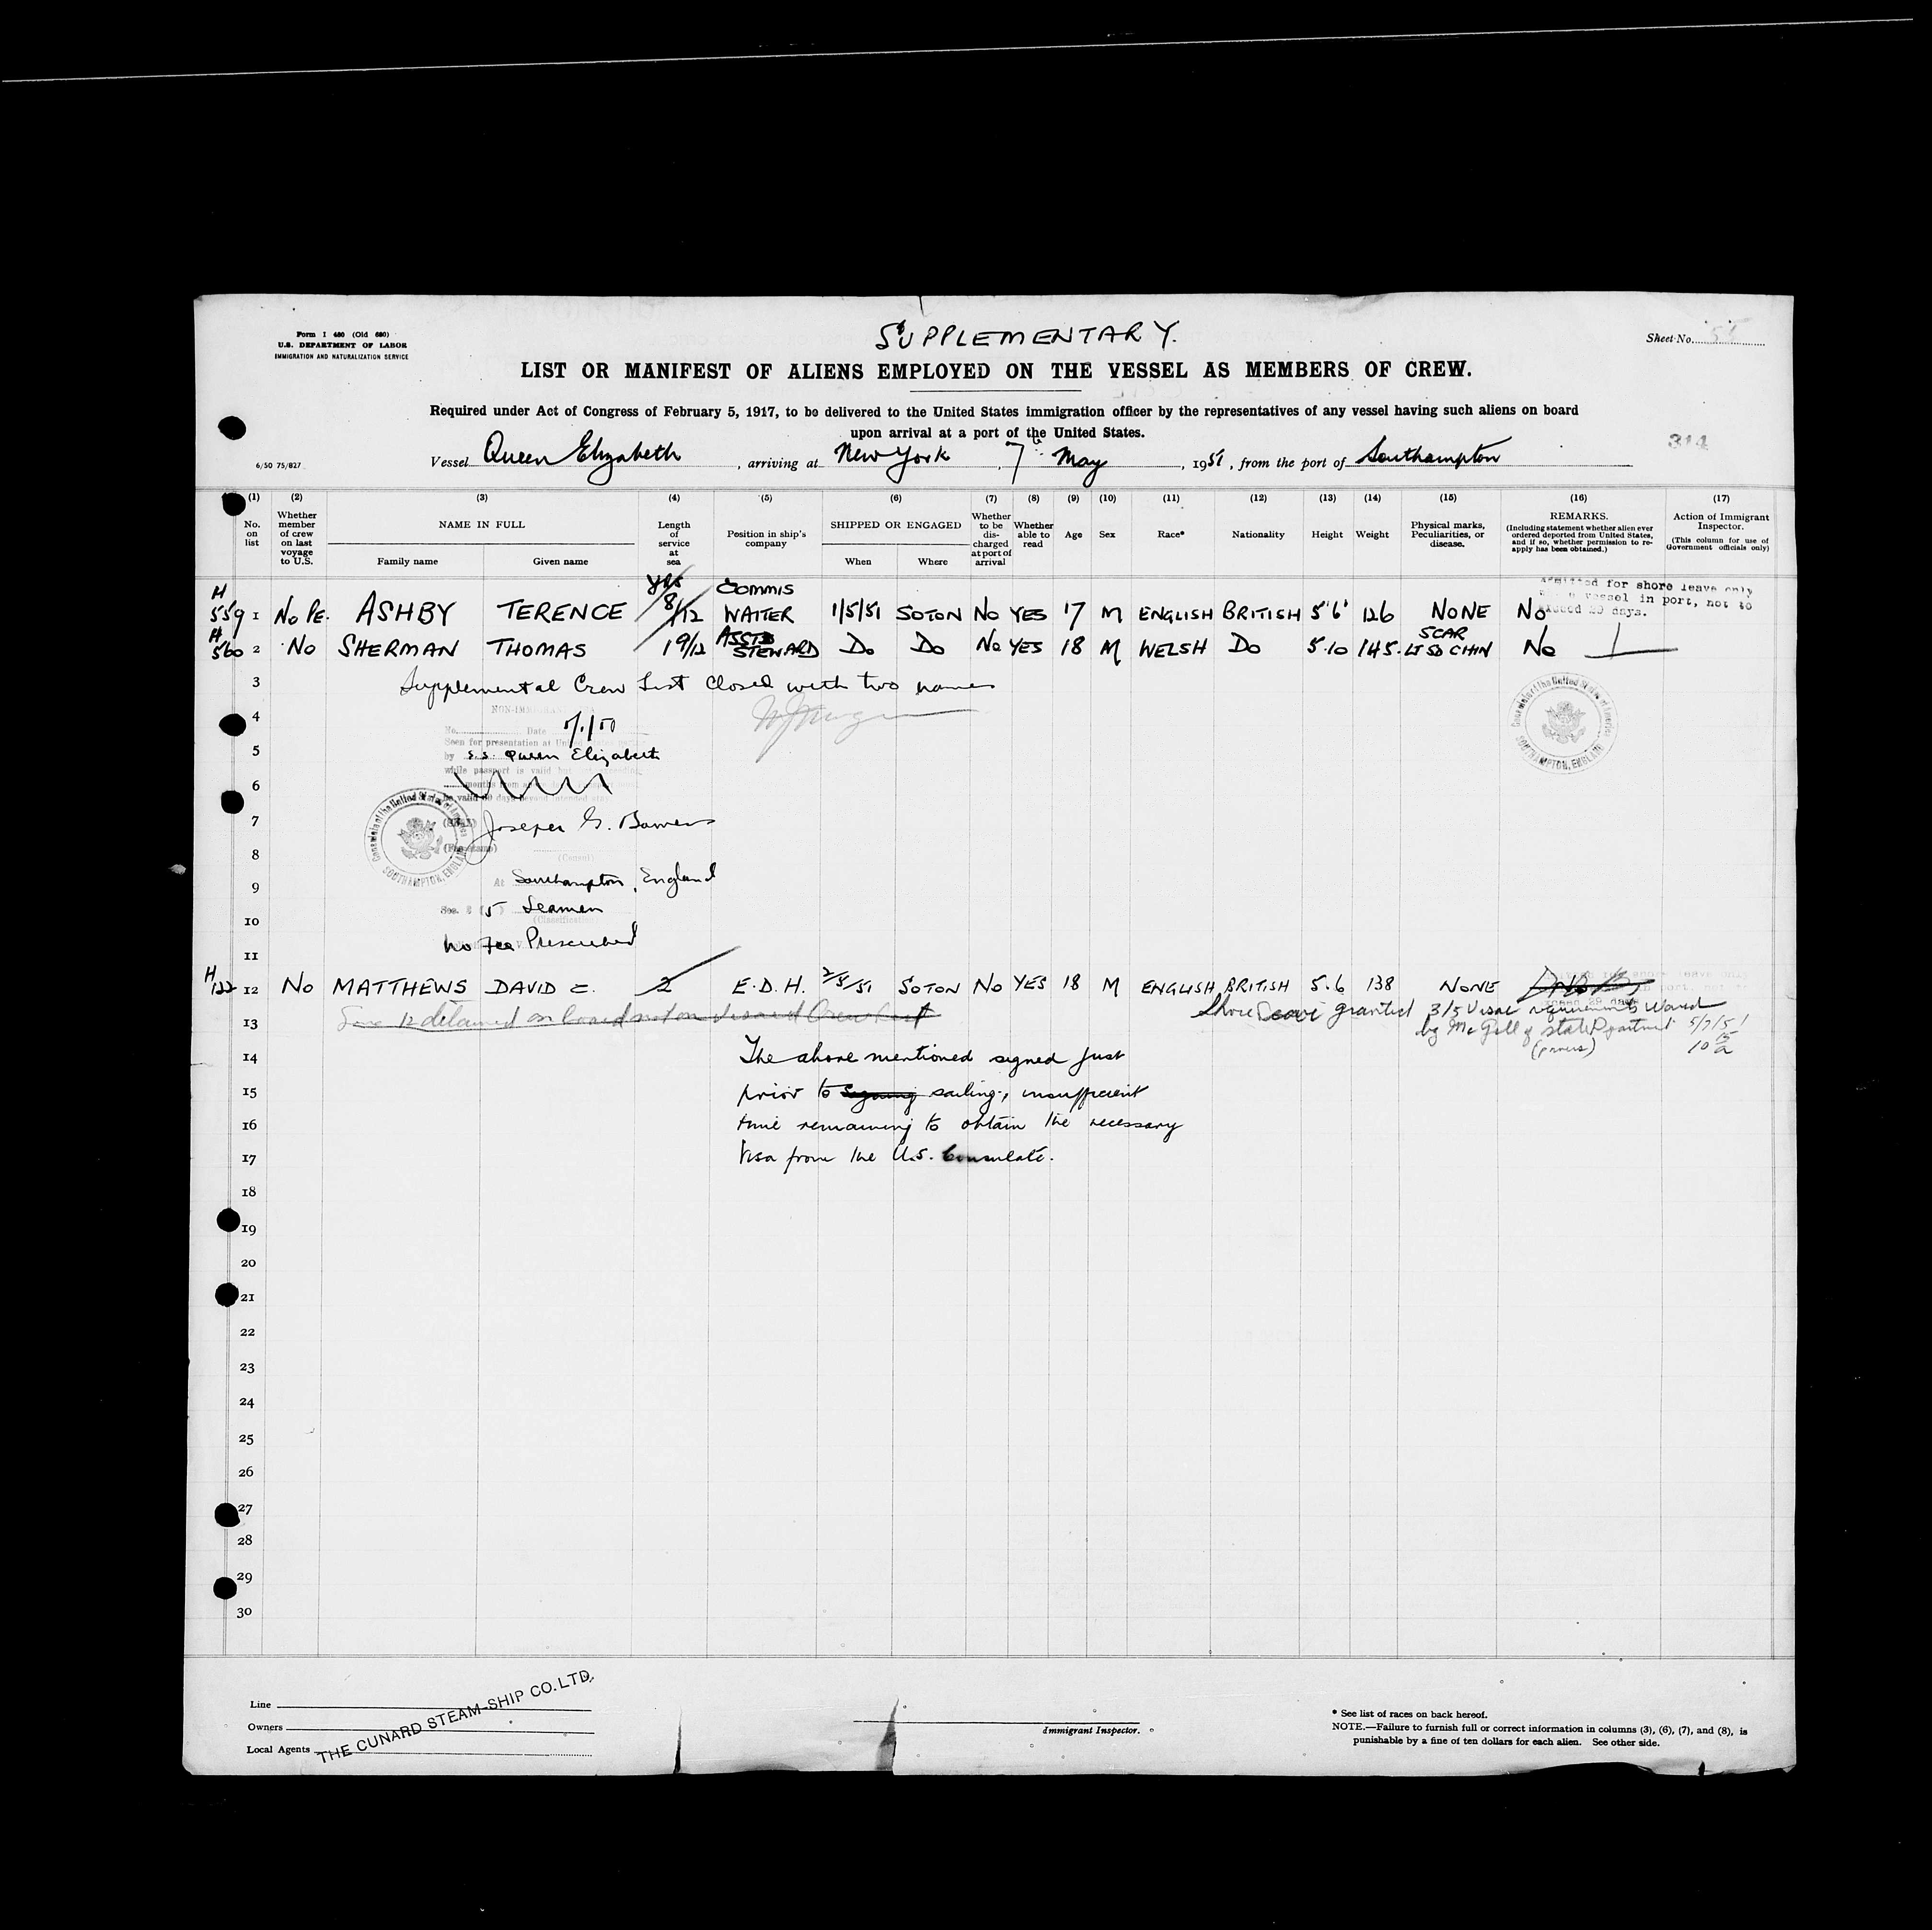 Form I 480 (Old 680)
U.S. DEPARTMENT OF LABOR
IMMIGRATION AND NATURALIZATION SERVICE
SUPPLEMENTARY.
Sheet No.
LIST OR MANIFEST OF ALIENS EMPLOYED ON THE VESSEL AS MEMBERS OF CREW.
Required under Act of Congress of February 5, 1917, to be delivered to the United States immigration officer by the representatives of any vessel having such aliens on board
upon arrival at a port of the United States.
314
6/50 75/827
Vessel Queen Elizabeth, arriving at New York, 7th May, 1951, from the port of Southampton
(1) (2) (3) (4) (5) (6) (7) (8) (9) (10) (11) (12) (13) (14) (15) (16) (17)
No. on list
Whether member of crew on last voyage to U.S.
NAME IN FULL
Family name Given name
Length of service at sea
Position in ship's company
SHIPPED OR ENGAGED
When Where
Whether to be discharged at port of arrival
Whether able to read
Age
Sex
Race*
Nationality
Height
Weight
Physical marks, Peculiarities, or disease.
REMARKS.
(Including statement whether alien ever ordered deported from United States, and if so, whether permission to re-apply has been obtained.)
Action of Immigrant Inspector.
(This column for use of Government officials only)
H 559 1 No Pe. ASHBY TERENCE yrs 8/12 COMMIS WAITER 1/5/51 SOTON No YES 17 M ENGLISH BRITISH 5'6' 126 NONE No
for shore leave only
vessel in port, not to
29 days.
H 560 2 No SHERMAN THOMAS 1 9/12 ASST STEWARD Do Do No YES 18 M WELSH Do 5.10 145. SCAR LT SD CHIN No
3 Supplemental Crew List closed with two names
4
NON-IMMIGRANT
No. Date
5 Seen for presentation at
by S.S. Queen Elizabeth
while passport is valid
6
Consulate of the United States of America
SOUTHAMPTON, ENGLAND
Consulate of the United States of America
SOUTHAMPTON, ENGLAND
7 Joseph G. Bowers
8
(Consul)
9 At Southampton, England
10 Sec. 3 (5) Seamen
(Classification)
11 No Fee Prescribed
H 122 12 No MATTHEWS DAVID C. 2 E.D.H. 2/5/51 SOTON No YES 18 M ENGLISH BRITISH 5.6 138 NONE
13 Line 12 detained on board not on visaed Crew List
Shore Leave granted 3/5 Visae requirements Waved
by McGill of State Department 5/7/51
14 The above mentioned signed just
15 prior to signing sailing, insufficient
16 time remaining to obtain the necessary
17 Visa from the U.S. Consulate.
18
19
20
21
22
23
24
25
26
27
28
29
30
Line
Owners
Local Agents
THE CUNARD STEAM-SHIP CO. LTD.
Immigrant Inspector.
* See list of races on back hereof.
NOTE.—Failure to furnish full or correct information in columns (3), (6), (7), and (8), is
punishable by a fine of ten dollars for each alien. See other side.